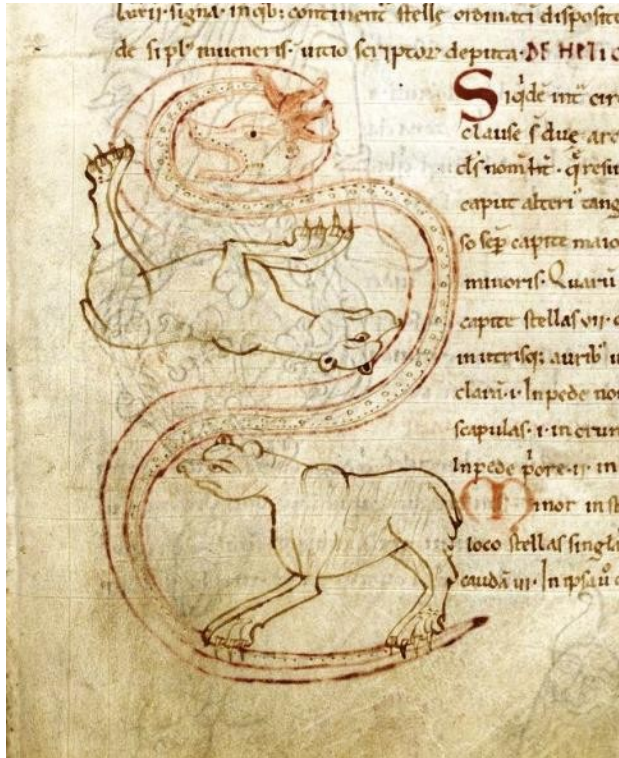 signa · in qib; continent stelle ordinati disposite
de si pl muneris · uitio scriptor deputa · DE HELIC
Siqde int circ
clause s due arc
nom · q resu
caput alteri tang
so sep capite maio
minoris · Quaru
capite stellas vii · c
in utrisq; aurib u
clara · i · In pede no
scapulas · i · in crur
In pede pore · ii · in
Minor in st
loco stellas singla
cauda iii · In ipsa u c